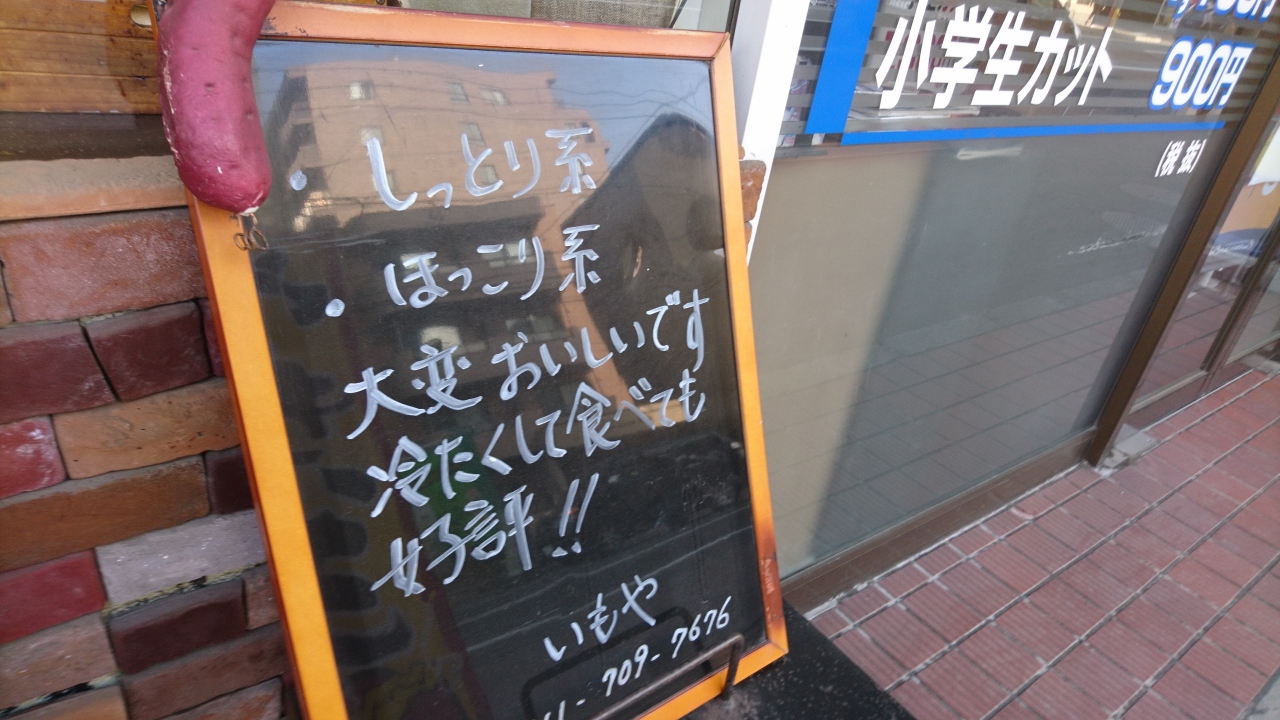 ・しっとり系
・ほっこり系
大変おいしいです
冷たくして食べても
好評!!
いもや
709-7676
小学生カット
900円
(税抜)